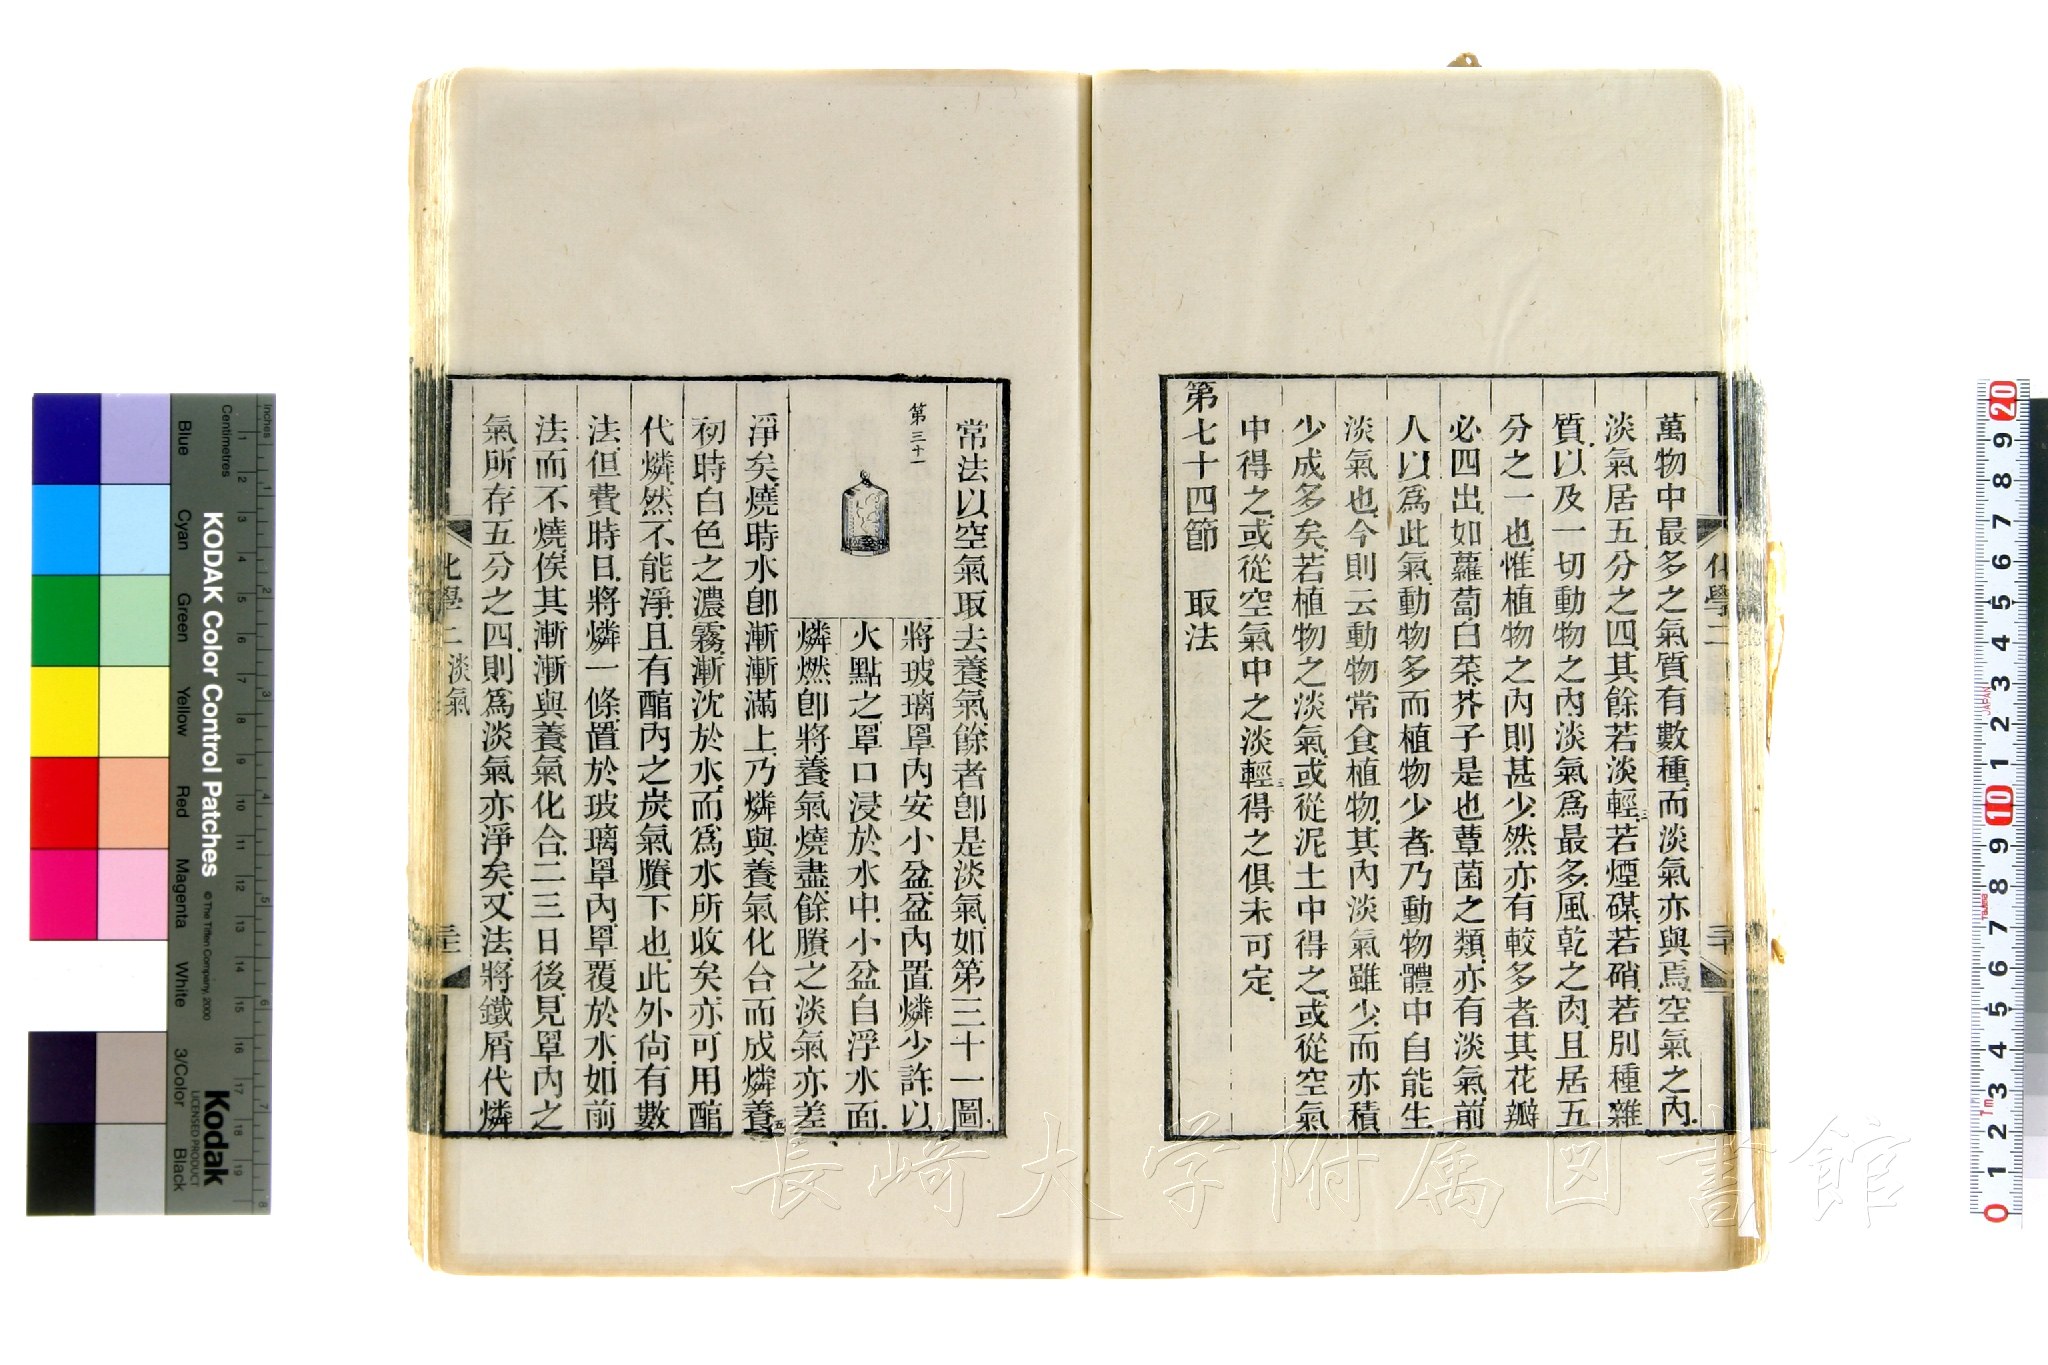 萬物中最多之氣質有數種而淡氣亦與焉空氣之內
淡氣居五分之四其餘若淡輕三若煙煤若硝若別種雜
質以及一切動物之內淡氣爲最多風乾之肉且居五
分之一也惟植物之內則甚少然亦有較多者其花瓣
必四出如蘿蔔白菜芥子是也蕈菌之類亦有淡氣前
人以爲此氣動物多而植物少者乃動物體中自能生
淡氣也今則云動物常食植物其內淡氣雖少而亦積
少成多矣若植物之淡氣或從泥土中得之或從空氣
中得之或從空氣中之淡輕三得之俱未可定
第七十四節　取法
化學二
三十
常法以空氣取去養氣餘者卽是淡氣如第三十一圖
第三十一
將玻璃罩內安小盆盆內置燐少許以
火點之罩口浸於水中小盆自浮水面
燐燃卽將養氣燒盡餘賸之淡氣亦差
淨矣燒時水卽漸漸滿上乃燐與養氣化合而成燐養五
初時白色之濃霧漸沈於水而爲水所收矣亦可用醕
代燐然不能淨且有醕內之炭氣賸下也此外尙有數
法但費時日將燐一條置於玻璃罩內罩覆於水如前
法而不燒俟其漸漸與養氣化合二三日後見罩內之
氣所存五分之四則爲淡氣亦淨矣又法將鐵屑代燐
化學二 淡氣
長崎大学附属図書館
KODAK Color Control Patches
© The Tiffen Company, 2000
Kodak
LICENSED PRODUCT
Inches
Centimetres
Blue
Cyan
Green
Yellow
Red
Magenta
White
3/Color
Black
JAPAN